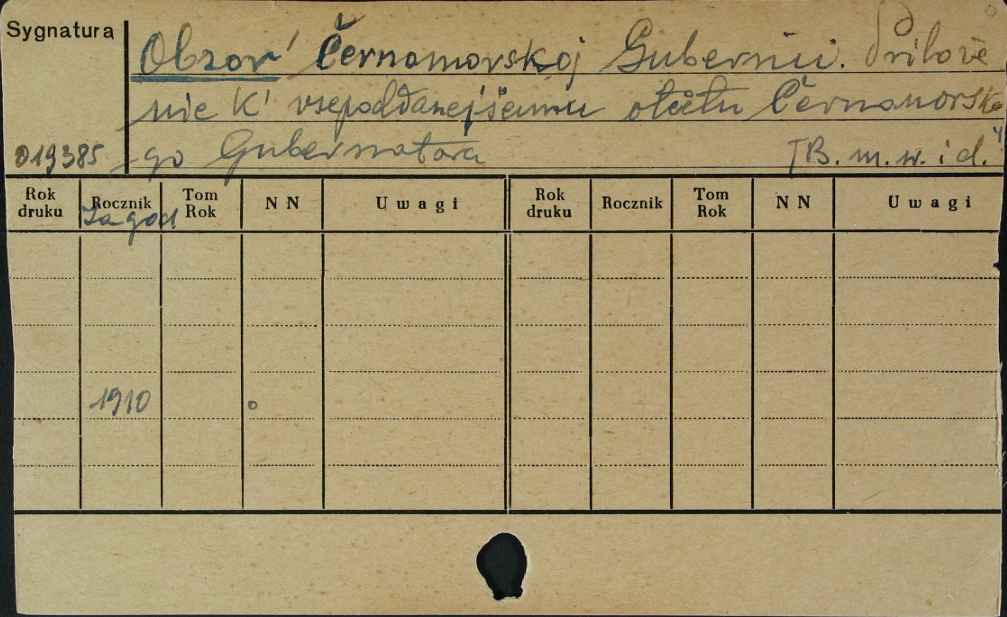 Sygnatura
Obzor' Černomorskoj Gubernii. Prilože
nie k' vsepoddanejšemu otčëtu Černomorska
019385 -go Gubernatora [B. m. w. i d.]
Rok druku Rocznik Tom Rok N N Uwagi Rok druku Rocznik Tom Rok N N Uwagi
Za god
1910 o